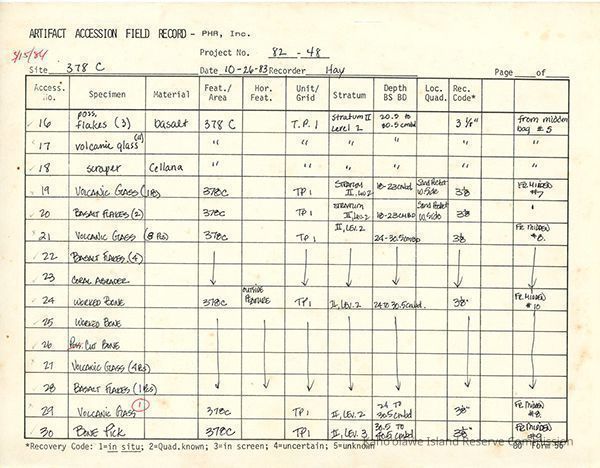 ARTIFACT ACCESSION FIELD RECORD - PHR, Inc.
3/15/84
Project No. 82 - 48
Site 378 C Date 10-26-83 Recorder Hay Page of
Access. no. Specimen Material Feat./ Area Hor. Feat. Unit/ Grid Stratum Depth BS BD Loc. Quad. Rec. Code*
16 poss. flakes (3) basalt 378 C T.P. 1 Stratum II Level 2 20.5 to 30.5 cmbd 3 1/8" from midden bag #5
17 volcanic glass (4) " " " " " "
18 scraper Cellana " " " " " "
19 VOLCANIC GLASS 378C TP1 STRATUM II, LEV. 2 18-23cmbd Sand Pocket W. Side 3 1/8 FR. MIDDEN #7
20 BASALT FLAKES (2) 378C TP1 STRATUM II, LEV. 2 18-23CMBD Sand Pocket W. Side 3 1/8 "
21 VOLCANIC GLASS 378C TP1 II, LEV. 2 24-30.5cmbd 3 1/8 FR. MIDDEN #8
22 BASALT FLAKES (4)
23 CORAL ABRADER
24 WORKED BONE 378C OUTSIDE FEATURE TP1 II, LEV. 2 24 to 30.5cmbd. 3 1/8" FR. MIDDEN #10
25 WORKED BONE
26 Poss. CUT BONE
27 VOLCANIC GLASS
28 BASALT FLAKES
29 VOLCANIC GLASS 1 378C TP1 II, LEV. 2 24 TO 30.5cmbd 3 1/8" FR. MIDDEN #8
30 BONE PICK 378C TP1 II, LEV. 3 30.5 TO cmbd 3 1/8" FR. MIDDEN #9
*Recovery Code: 1=in situ; 2=Quad.known; 3=in screen; 4=uncertain; 5=unknown
Kahoolawe Island Reserve Commission
80 Form 96